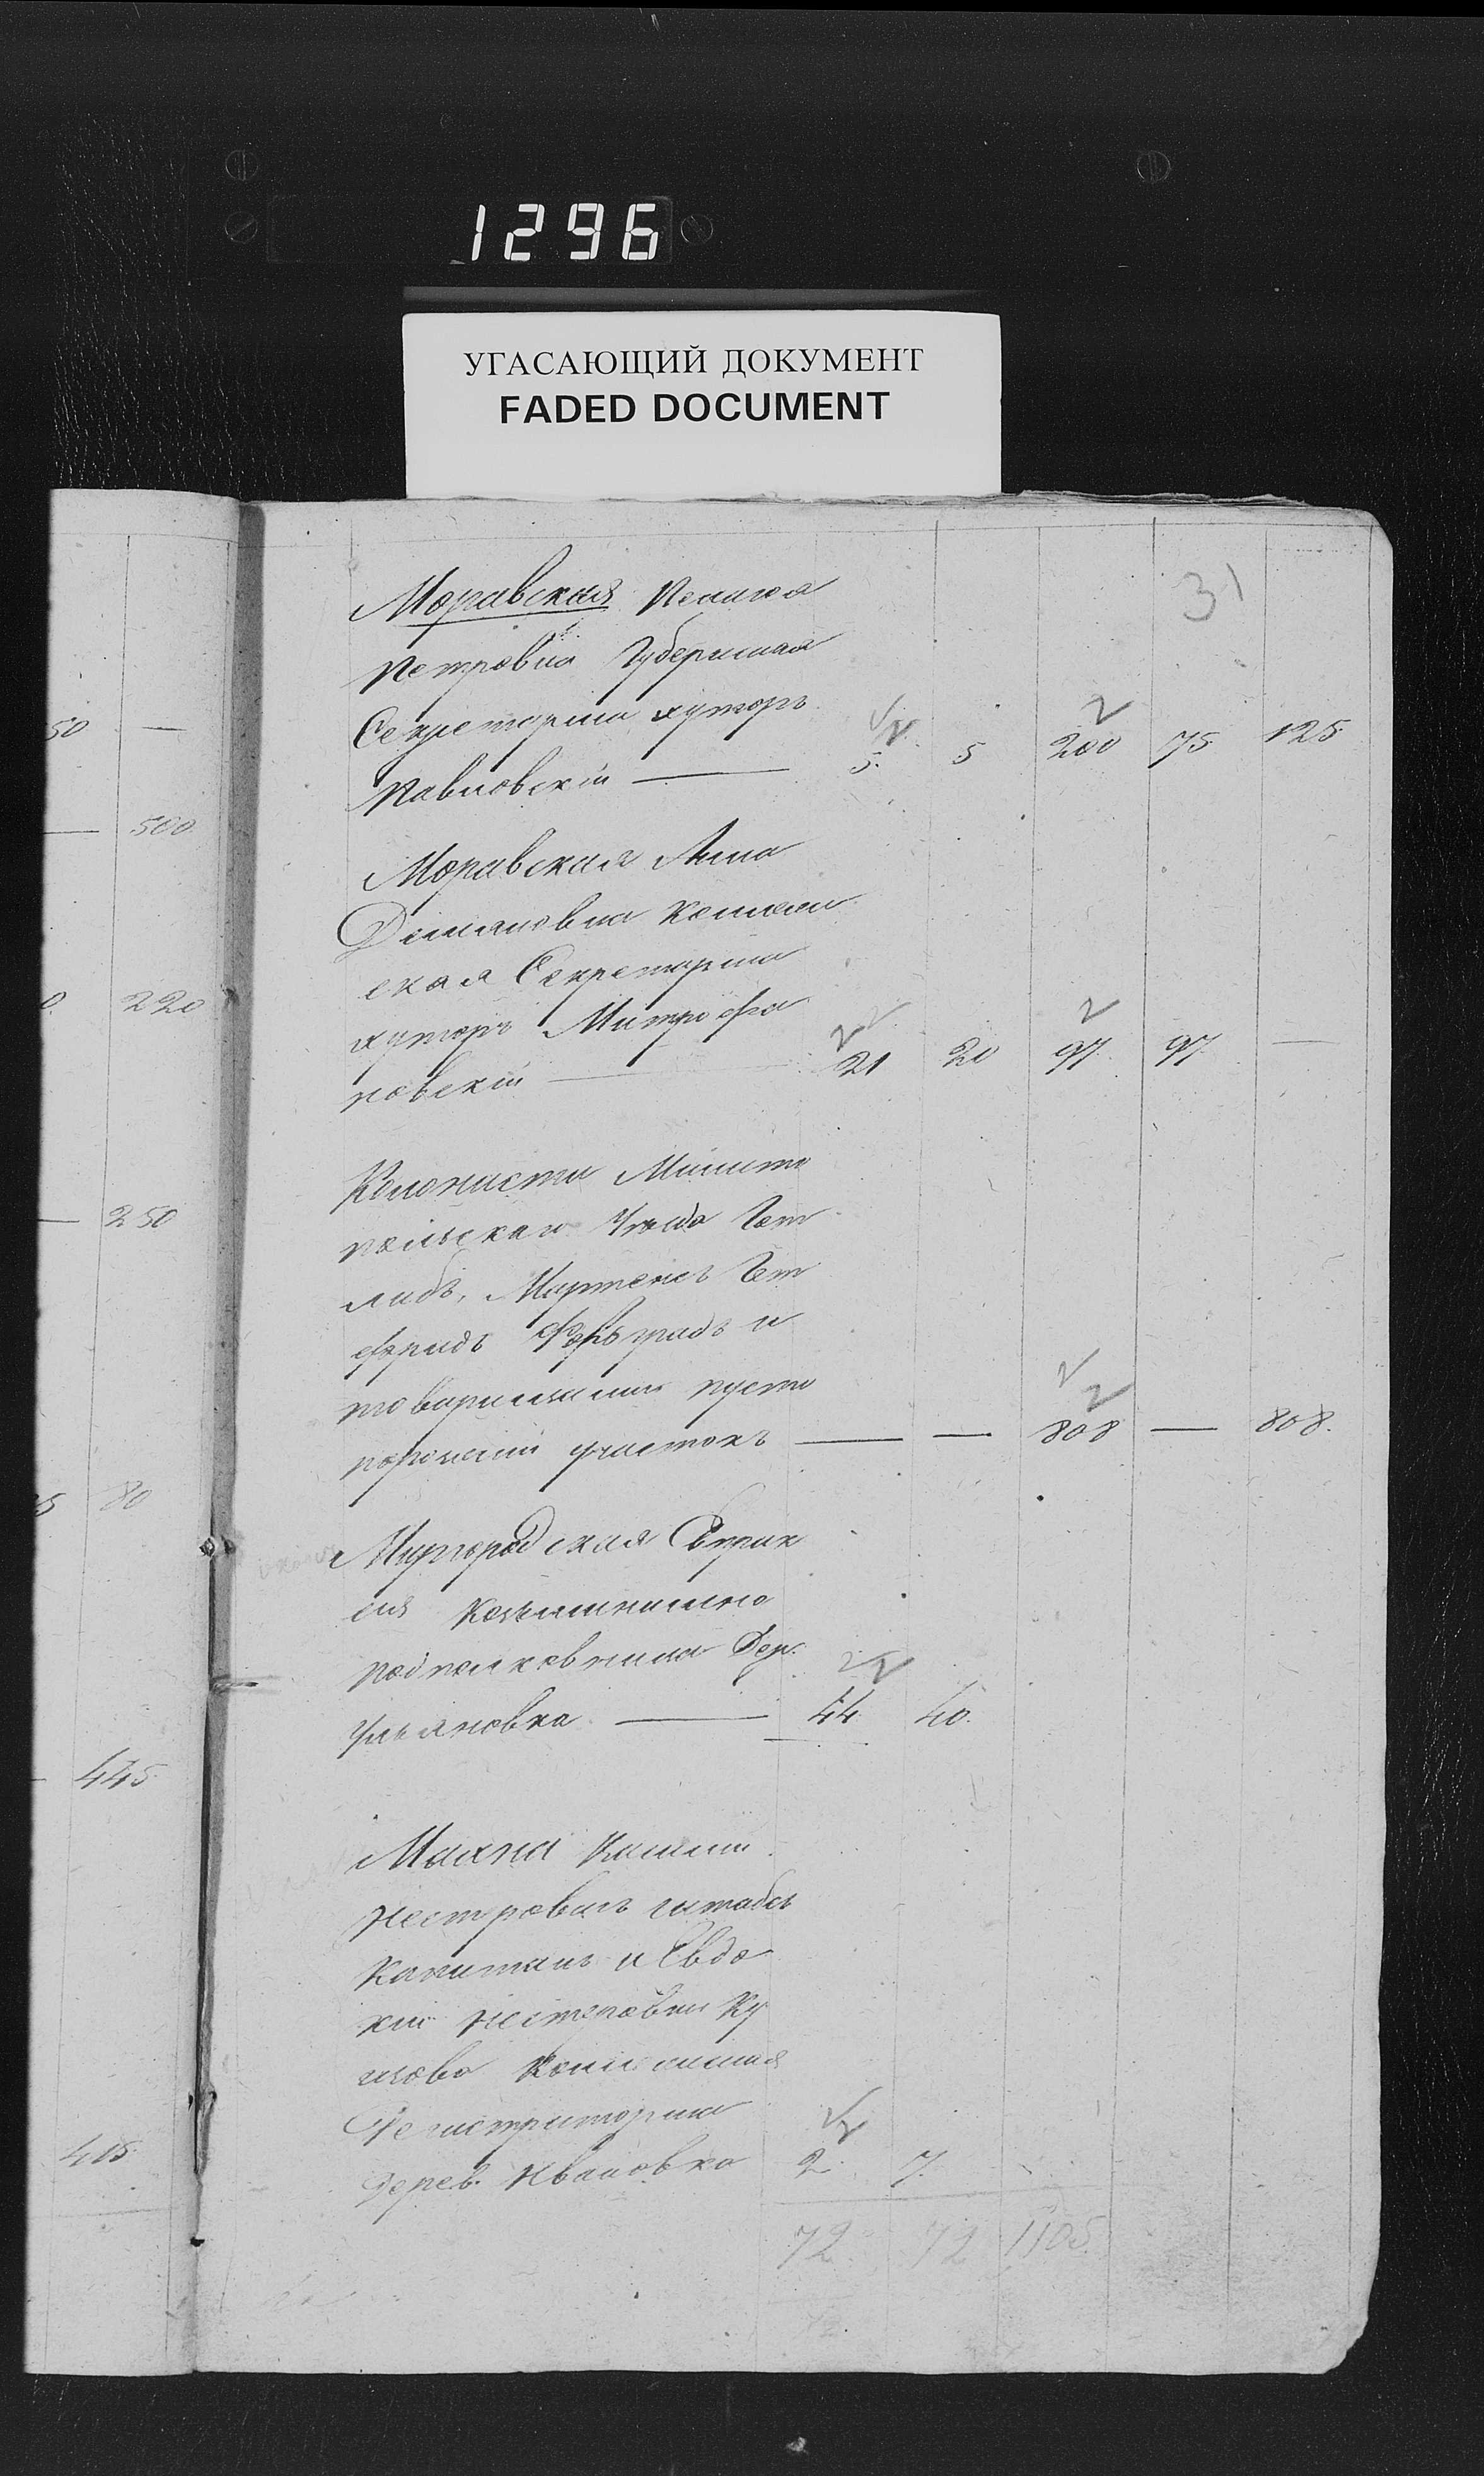 1296
УГАСАЮЩИЙ ДОКУМЕНТ
FADED DOCUMENT
31
50 —
— 500
0. 220
— 250
5 80
445.
415.
Моравская Пелагея
Петровна Губернская
Секретарша хуторъ
Павловскій — 5. 5 200 75 125
Моравская Анна
Демяновна
ская Секретарша
хуторъ Митрофа
новскій — 21 20 97 97 —
Колонисты Мелито
польскаго Уезда Гот
либъ, Мартенсъ Гот
фридъ и
товарищами пусто
порожній участокъ — — 808 — 808.
Миргородская
подполковница Дер.
Ульяновка — 44 40.
Махна
Нестровичъ штабсъ
Капитанъ и Евдо
кіи Нестеровны Ку
Регистраторша
Дерев. Ивановка 2. 7.
72 72 1105